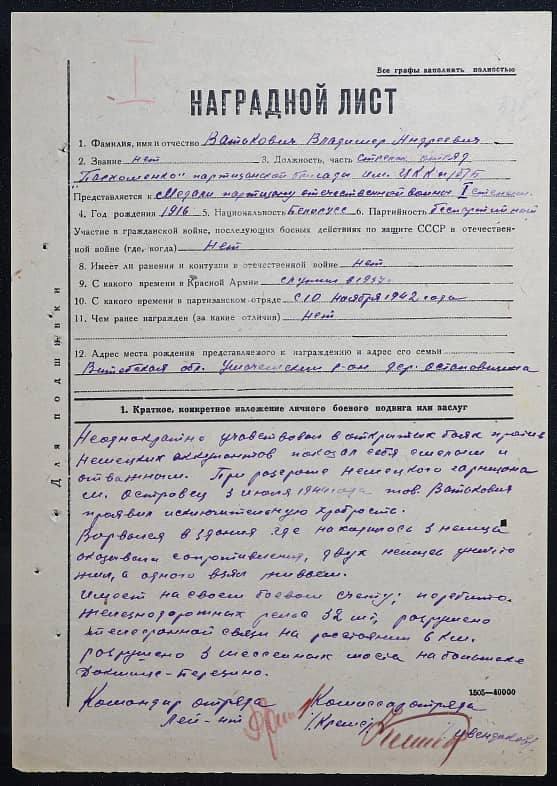 Все графы заполнить полностью
I
НАГРАДНОЙ ЛИСТ
1. Фамилия, имя и отчество Ватыкович Владимир Андреевич
2. Звание нет 3. Должность, часть Стрелок отряд
"Пархоменко" партизанской бригады им. ЦК КП(б)Б
Представляется к Медали партизану отечественной войны I степени
4. Год рождения 1916 5. Национальность Белорусс 6. Партийность беспартийный
Участие в гражданской войне, последующих боевых действиях по защите СССР и отечествен-
ной войне (где, когда) Нет
8. Имеет ли ранения и контузии в отечественной войне нет
9. С какого времени в Красной Армии служил в 1937г.
10. С какого времени в партизанском отряде с 10 ноября 1942 года
11. Чем ранее награжден (за какие отличия) Нет
12. Адрес места рождения представляемого к награждению и адрес его семьи
Витебская обл. Ушачский р-он дер.
Для подшивки
1. Краткое, конкретное изложение личного боевого подвига или заслуг
Неоднократно участвовал в открытых боях против
немецких оккупантов показал себя смелым и
отважным. При разгроме немецкого гарнизона
м. Островец 3 июля 1944 года тов. Ватыкович
проявил исключительную храбрость.
Ворвался в здания где находилось 3 немца
оказывали сопротивления, двух немцев уничто
жил, а одного взяли живьем.
Имеет на своем боевом счету: перебито
железнодорожных рельс 32 шт, разрушено
телефонной связи на расстоянии 6 км.
разрушено 3 шоссейных моста на большаке
Докшицы-Березино.
1505—40000
Командир отряда Комиссар отряда
Лей-нт